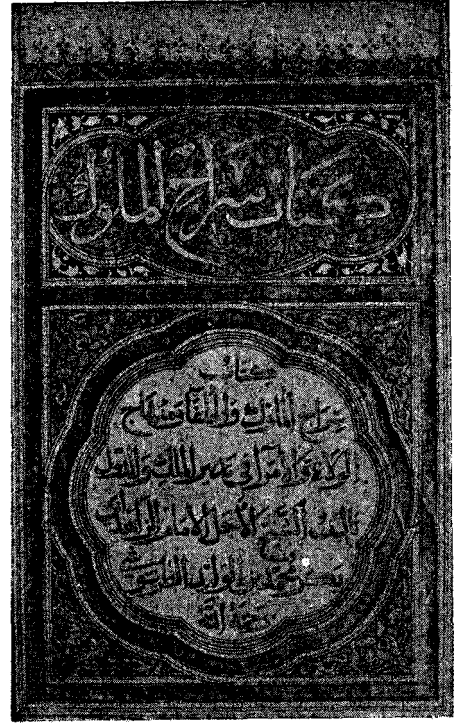 كتاب سراج الملوك
كتاب
سراج الملوك والخلفا ومنهاج
الولاة والأمرآ في
تاليف الشيخ الأجل الإمام الزاهد أبي
بكر محمد بن الوليد الطرطوشي
رحمه الله